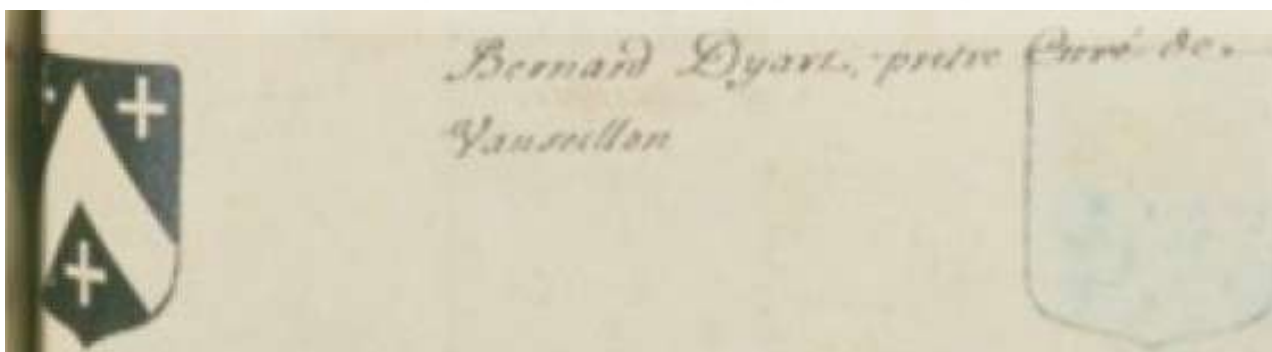 Bernard Dyart, pretre Curé de
Vauseillon